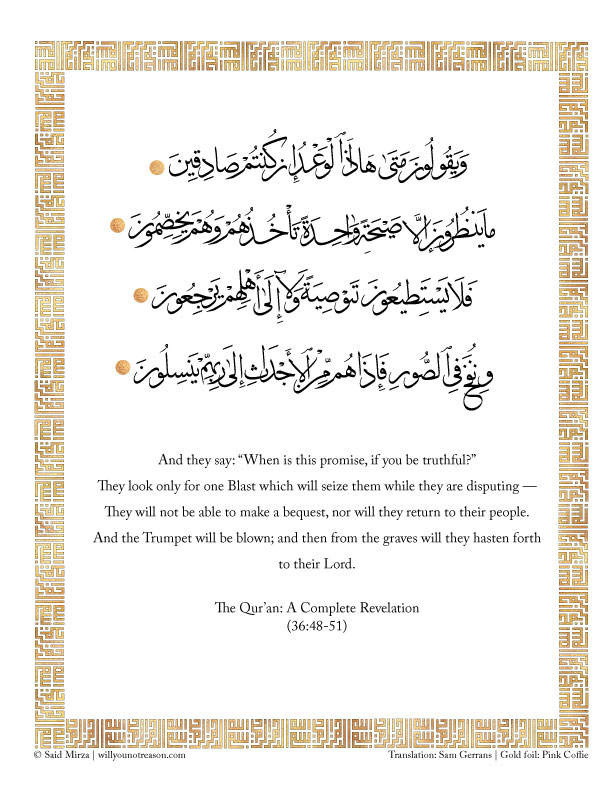 وَيَقُولُونَ مَتَىٰ هَٰذَا ٱلْوَعْدُ إِن كُنتُمْ صَادِقِينَ
مَا يَنظُرُونَ إِلَّا صَيْحَةً وَاحِدَةً تَأْخُذُهُمْ وَهُمْ يَخِصِّمُونَ
فَلَا يَسْتَطِيعُونَ تَوْصِيَةً وَلَا إِلَىٰ أَهْلِهِمْ يَرْجِعُونَ
وَنُفِخَ فِي ٱلصُّورِ فَإِذَا هُم مِّنَ ٱلْأَجْدَاثِ إِلَىٰ رَبِّهِمْ يَنسِلُونَ
And they say: “When is this promise, if you be truthful?”
They look only for one Blast which will seize them while they are disputing —
They will not be able to make a bequest, nor will they return to their people.
And the Trumpet will be blown; and then from the graves will they hasten forth
to their Lord.
The Qur’an: A Complete Revelation
(36:48-51)
© Said Mirza | willyounotreason.com
Translation: Sam Gerrans | Gold foil: Pink Coffie